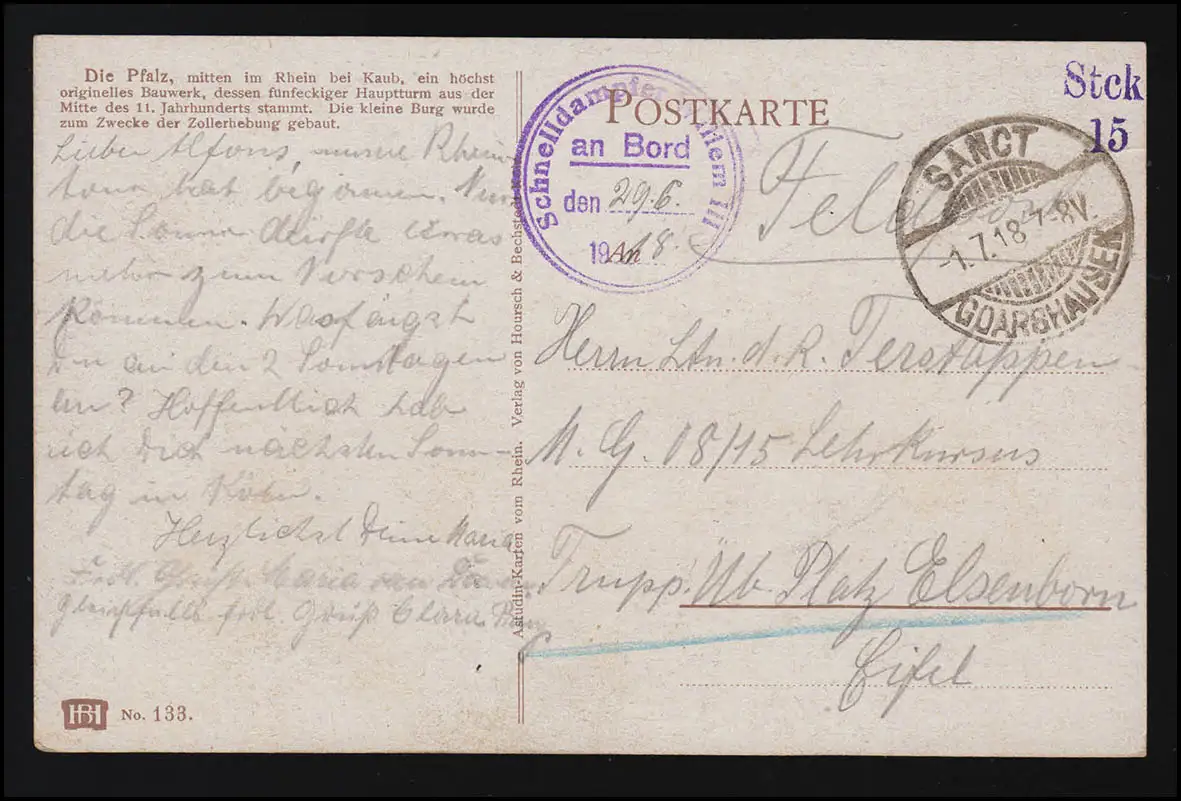 Die Pfalz, mitten im Rhein bei Kaub, ein höchst
originelles Bauwerk, dessen fünfeckiger Hauptturm aus der
Mitte des 11. Jahrhunderts stammt. Die kleine Burg wurde
zum Zwecke der Zollerhebung gebaut.
Lieber Alfons, unsere Rhein-
tour hat begonnen. Nur
die Sonne dürfte etwas
mehr zum Vorschein
kommen. Was fängst
Du an den 2 Sonntagen
an? Hoffentlich hab
ich Dich nächsten Sonn-
tag in Köln.
Herzlichst Deine Maria
Frdl. Gruß Maria van
Gleichfalls frdl. Gruß Clara
HB No. 133.
Astudin-Karten vom Rhein. Verlag von Hoursch & Bechstedt
Schnelldampfer III
an Bord
den 29.6.
19 18.
POSTKARTE
Stck
15
Feldpost
SANCT
-1.7.18 7-8V.
GOARSHAUSEN
Herrn Ltn. d. R. Terstappen
M. G. 08/15 Lehrkursus
Trupp. Üb. Platz Elsenborn
Eifel